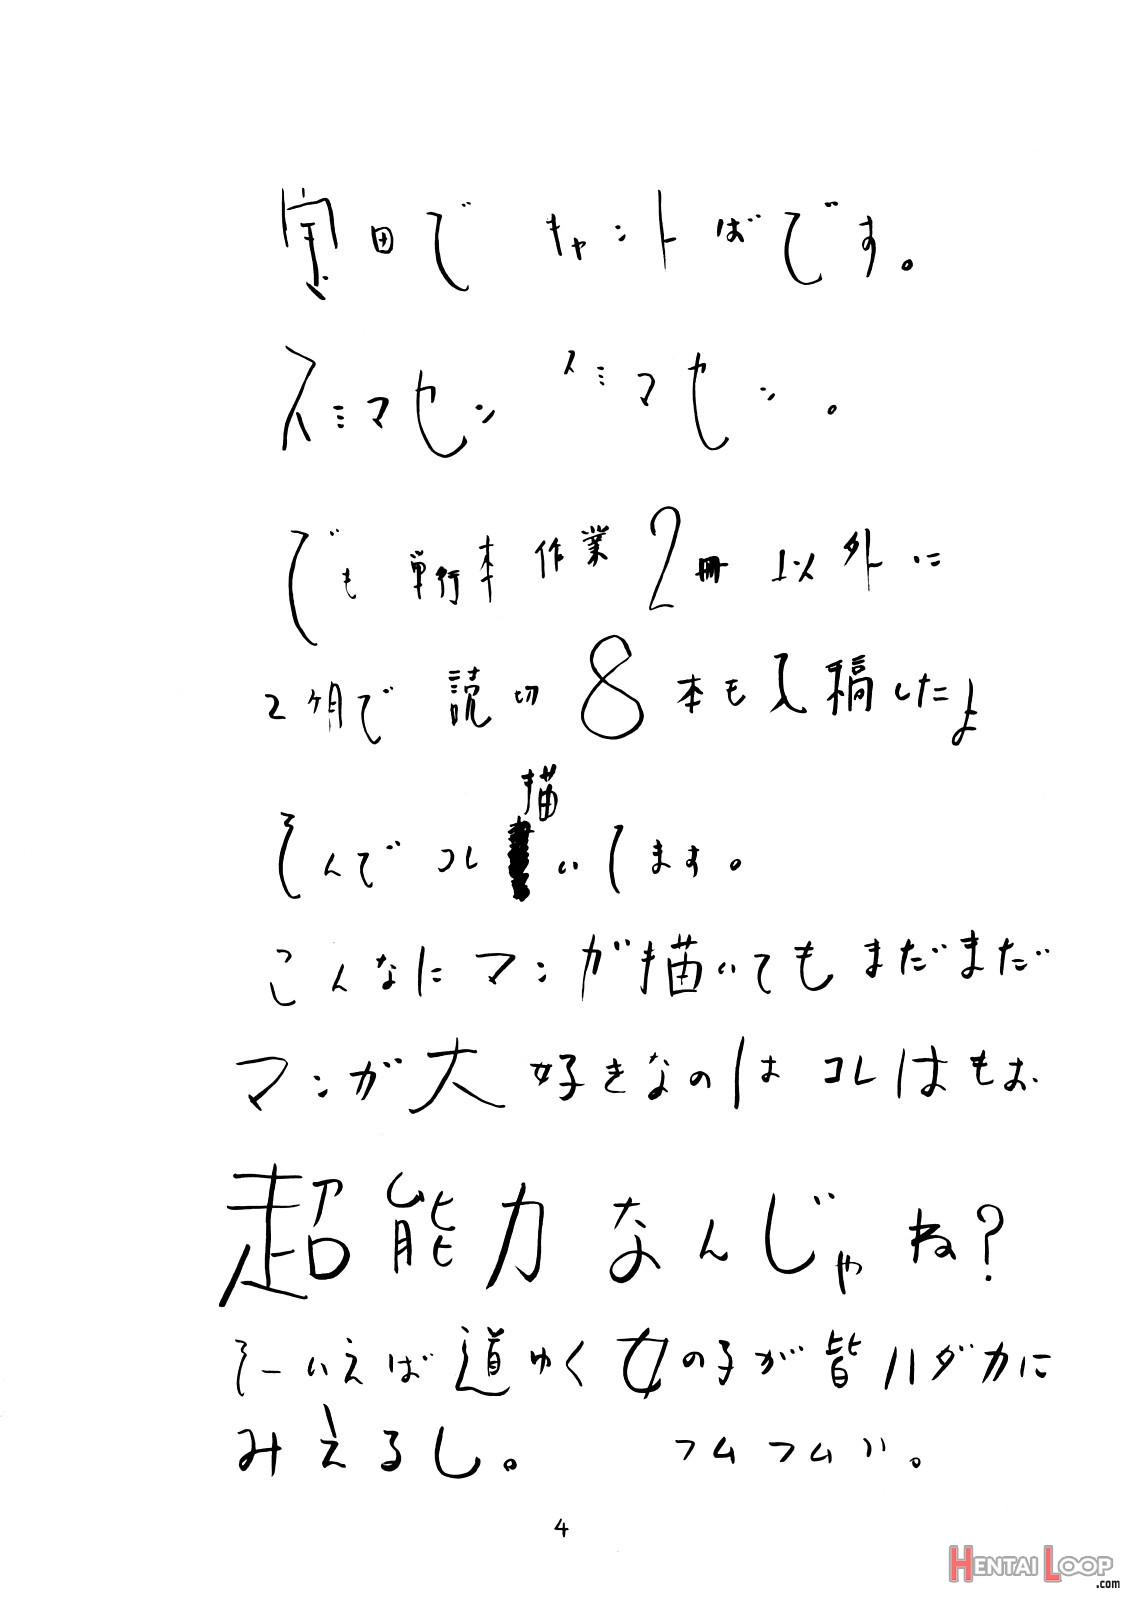 室田で キャントばです。
スミマセン スミマセン。
でも単行本作業2冊以外に
2ヶ月で読切8本も入稿したよ
描
そんでコレ いてます。
こんなにマンガ描いてもまだまだ
マンガ大好きなのはコレはもお
超能力なんじゃね?
そーいえば道ゆく女の子が皆ハダカに
みえるし。 フムフムッ。
4
HENTAI LOOP
.com